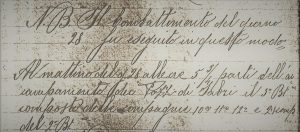 N. B. Il Combattimento del giorno
28 fu eseguito in questo modo
Al mattino del 28 alle ore 5 ½ partì dell'ac
campamento
di Fabri il 5° Bt
composto delle Compagnie 10ª 11ª 12ª e
del 2° Bt